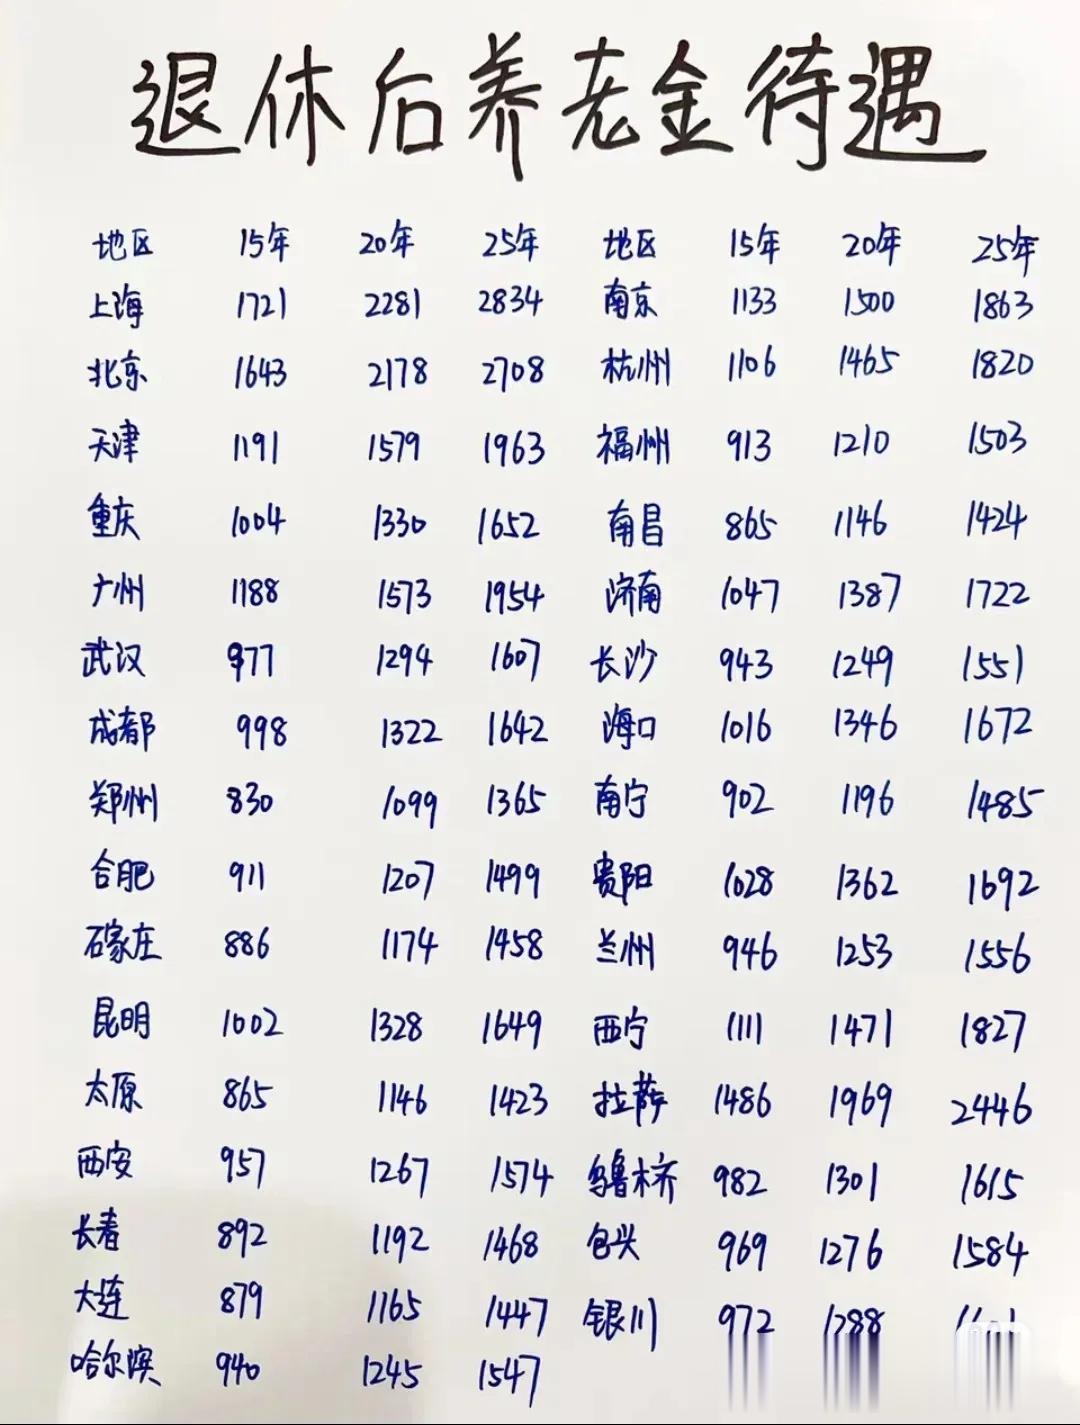 退休后养老金待遇
地区 15年 20年 25年 地区 15年 20年 25年
上海 1721 2281 2834 南京 1133 1500 1863
北京 1643 2178 2708 杭州 1106 1465 1820
天津 1191 1579 1963 福州 913 1210 1503
重庆 1004 1330 1652 南昌 865 1146 1424
广州 1188 1573 1954 济南 1047 1387 1722
武汉 977 1294 1607 长沙 943 1249 1551
成都 998 1322 1642 海口 1016 1346 1672
郑州 830 1099 1365 南宁 902 1196 1485
合肥 911 1207 1499 贵阳 1028 1362 1692
石家庄 886 1174 1458 兰州 946 1253 1556
昆明 1002 1328 1649 西宁 1111 1471 1827
太原 865 1146 1423 拉萨 1486 1969 2446
西安 957 1267 1574 乌鲁木齐 982 1301 1615
长春 892 1192 1468 包头 969 1276 1584
大连 879 1165 1447 银川 972 1288
哈尔滨 940 1245 1547